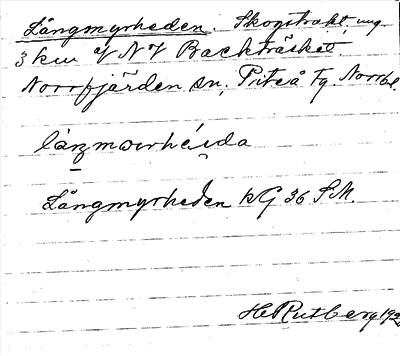 Långmyrheden. Skogstrakt, ung.
3 km af N af Backträsket.
Norrfjärden sn, Piteå tg. Norrb.
Långmyrheden kG 36 SM.
HRutberg 192